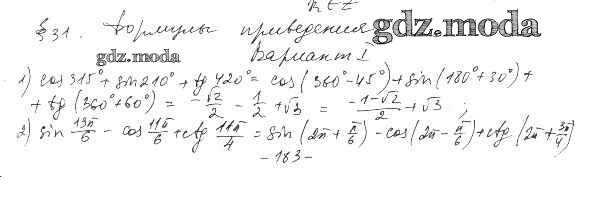 k ∈ Z
§31. Формулы приведения gdz.moda
gdz.moda Вариант I
1) cos 315° + sin 210° + tg 420° = cos (360° - 45°) + sin (180° + 30°) +
+ tg (360° + 60°) = -√2/2 - 1/2 + √3 = (-1-√2)/2 + √3 ;
2) sin 13π/6 - cos 11π/6 + ctg 11π/4 = sin (2π + π/6) - cos (2π - π/6) + ctg (2π + 3π/4)
- 183 -